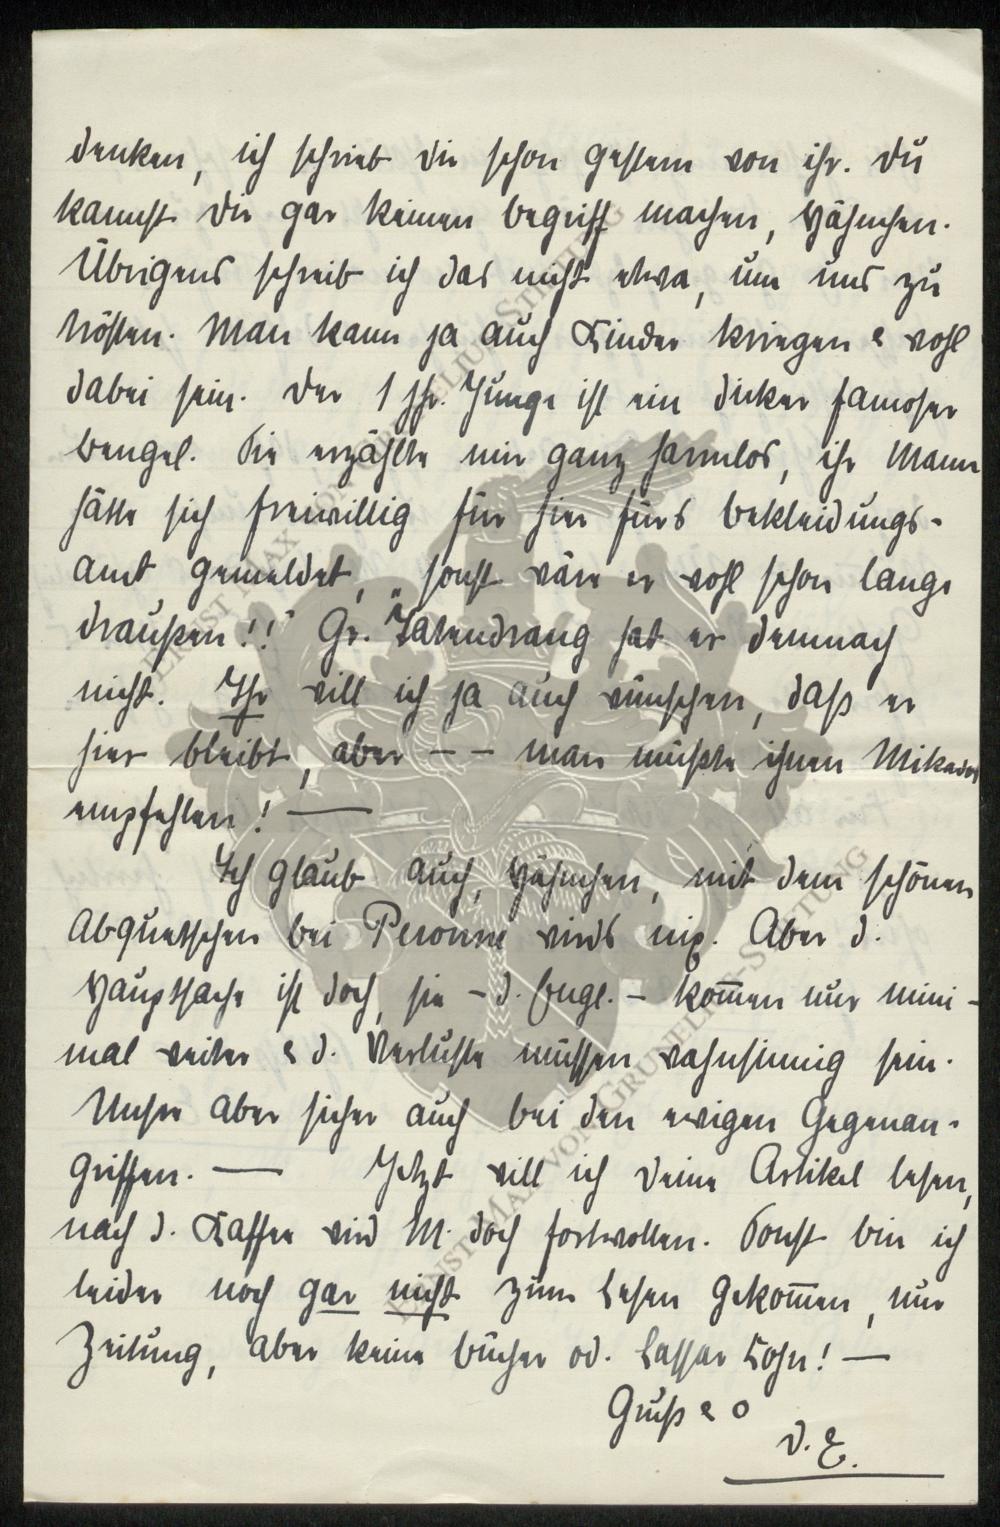 denken, ich schrieb dir schon gestern von ihr. Du
kannst dir gar keinen Begriff machen, Hähnchen.
Übrigens schreib ich das nicht etwa, um uns zu
trösten. Man kann ja auch Kinder kriegen & wohl
dabei sein. Der 1 jhr. Junge ist ein dicker famoser
Bengel. Sie erzählte mir ganz harmlos, ihr Mann
hätte sich freiwillig für hier fürs Bekleidungs-
amt gemeldet, „sonst wäre er wohl schon lange
draußen!!" Gr. Tatendrang hat er demnach
nicht. Ihr will ich ja auch wünschen, daß er
hier bleibt, aber – – man müßte ihnen
empfehlen! —
Ich glaub auch, Hähnchen, mit dem schönen
Abquetschen bei Peronne wirds nix. Aber d.
Hauptsache ist doch, sie – d. Engl. – kom̅en nur mini-
mal weiter & d. Verluste müssen wahnsinnig sein.
Unsre aber sicher auch bei den ewigen Gegenan-
griffen. — Jetzt will ich deine Artikel lesen,
nach d. Kaffee wird M. doch fortwollen. Sonst bin ich
leider noch gar nicht zum Lesen gekom̅en, nur
Zeitung, aber keine Bücher od. Lassar Cohn! —
Gruß & o
D. E.
ERNST MAX VON GRUNELIUS-STIFTUNG
ERNST MAX VON GRUNELIUS-STIFTUNG